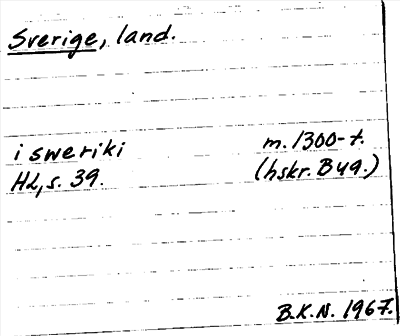 Sverige, land.
i sweriki m. 1300-t.
HL, s. 39. (hskr. B 49.)
B.K.N. 1967.